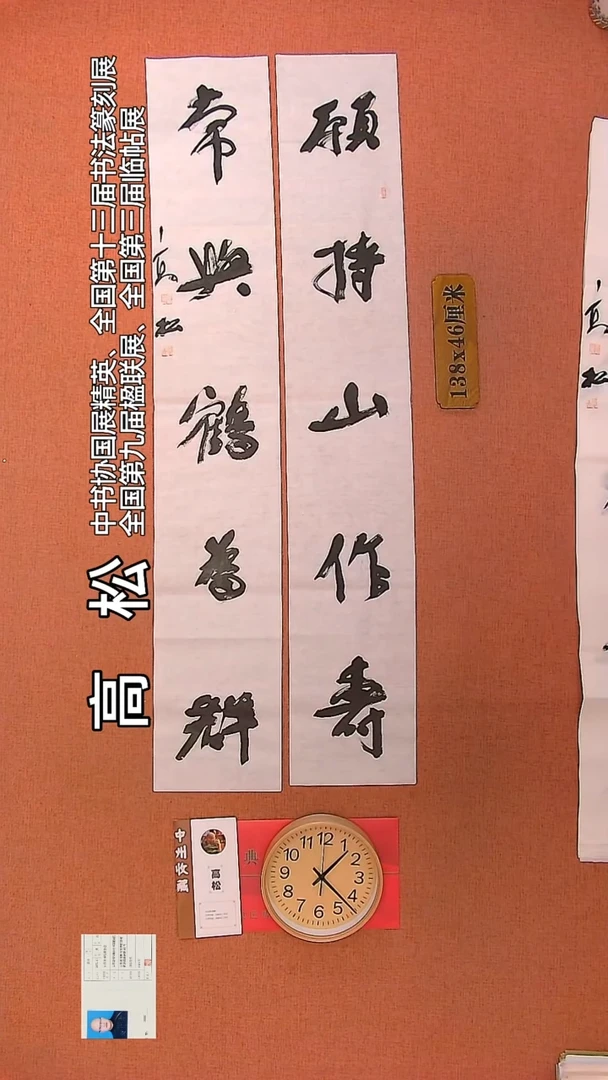 願持山作壽
常與鶴為群
高松
中书协国展精英、全国第十三届书法篆刻展
全国第九届楹联展、全国第三届临帖展
高 松
138x46厘米
高松
高松
典
12 1 2 3 4 5 6 7 8 9 10 11